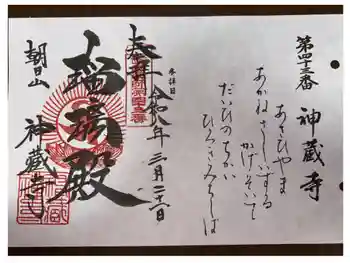 第四十三番 神蔵寺
あさひやま
あかねさしいずる
かげそいて
だいひのちかい
ひろきみちしば
参拝日
奉拝 令和八年 三月二十一日
瑠璃殿
朝日山 神蔵寺